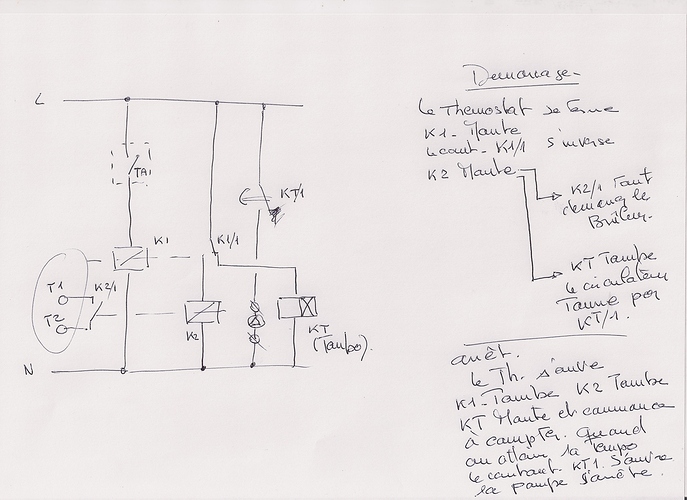 L
TA
K1
K1/1
KT/1
T1
K2/1
T2
K2
KT
(Tempo).
N
Demarrage
Le Thermostat se ferme
K1 - Monte
le cont - K1/1 s'inverse
K2 Monte
K2/1 Fait
demarrer le
Brûleur.
KT Tombe
le circulateur
Tourne par
KT/1.
arrêt.
le Th. s'ouvre
K1 - Tombe K2 Tombe
KT Monte et commence
à compter. Quand
on atteint la tempo
le contact KT1. S'ouvre
la pompe s'arrête.